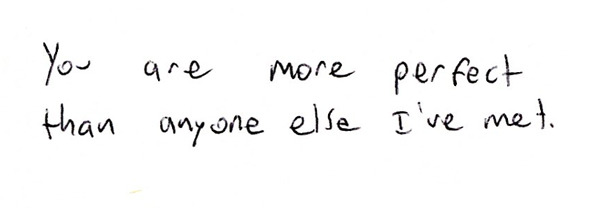 You are more perfect
than anyone else I've met.